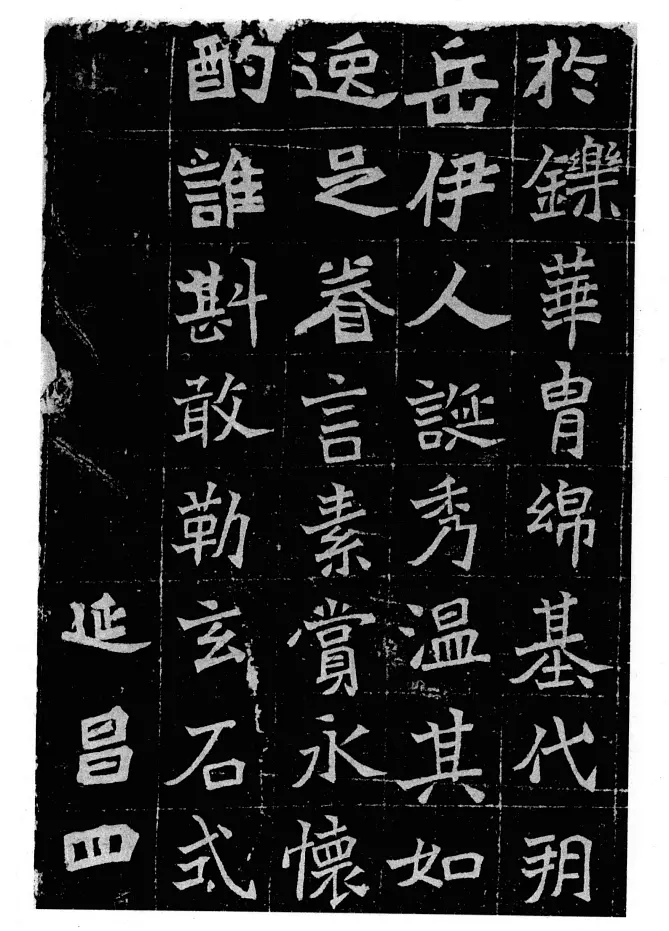 於鑠華胄綿基代
岳伊人誕秀温其如
逸足眷言素賞永懷
酌誰斟敢勒玄石式
延昌四